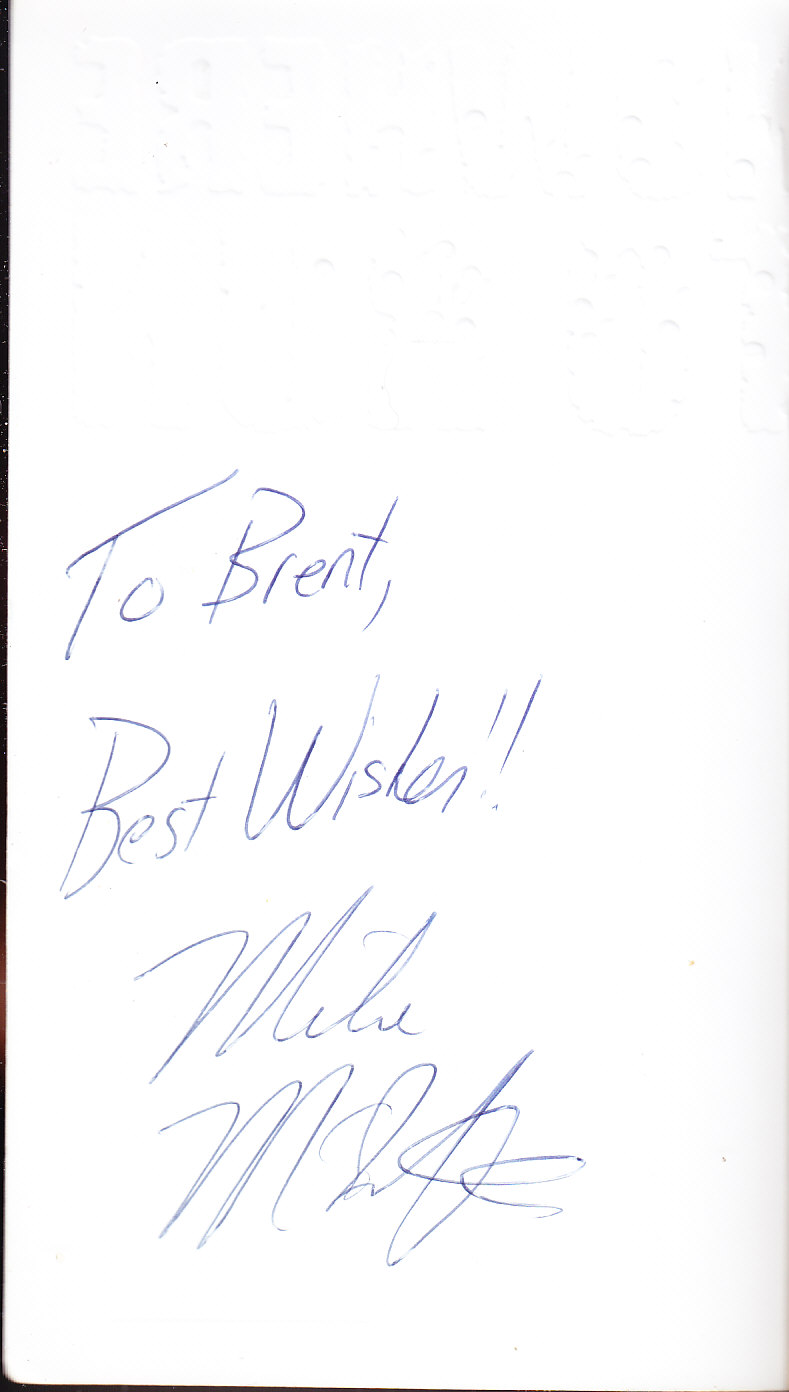 To Brent,
Best Wishes!!
Mike